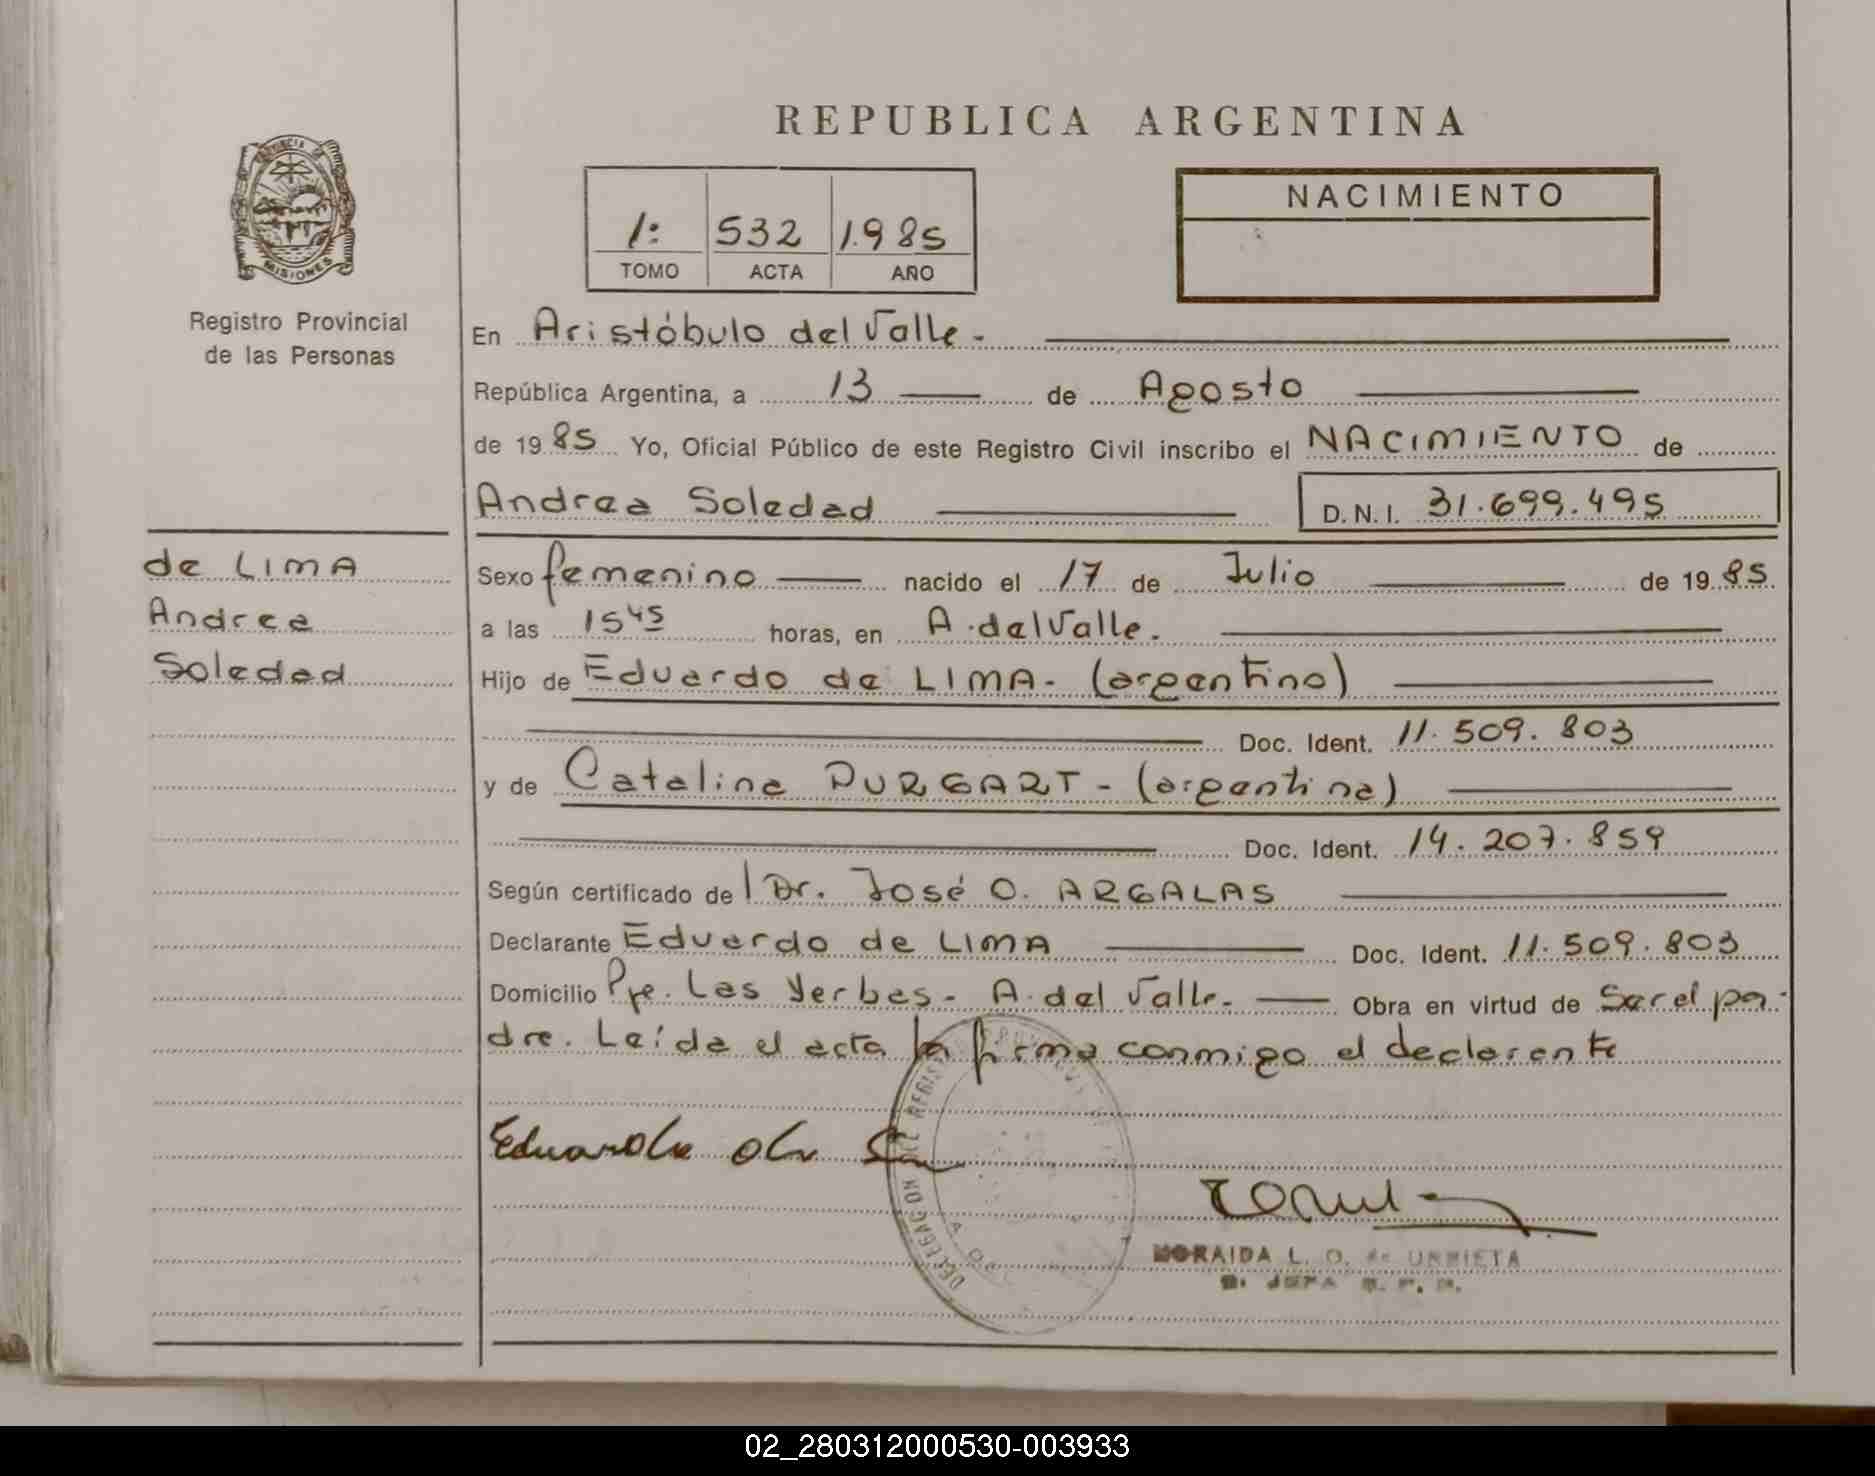 REPUBLICA ARGENTINA
PROVINCIA DE
MISIONES
Registro Provincial
de las Personas
1: 532 1.985
TOMO ACTA AÑO
NACIMIENTO
En Aristóbulo del Valle.-
República Argentina, a 13 de Agosto
de 1985 Yo, Oficial Público de este Registro Civil inscribo el NACIMIENTO de
Andrea Soledad D.N.I. 31.699.495
de LIMA
Andrea
Soledad
Sexo femenino nacido el 17 de Julio de 1985.
a las 15 45 horas, en A. del Valle.
Hijo de Eduardo de LIMA- (argentino)
Doc. Ident. 11.509.803
y de Catalina DURGART - (argentina)
Doc. Ident. 14.207.859
Según certificado de l Dr. José O. ARGALAS
Declarante Eduardo de LIMA Doc. Ident. 11.509.803
Domicilio Pje. Las Yerbas- A. del Valle.- Obra en virtud de Ser el pa-
dre. Leída el acta la firma conmigo el declarante
Eduardo de
DELEGACION DEL REGISTRO
MORAIDA L. O. de URRIETA
JEFA
02_280312000530-003933